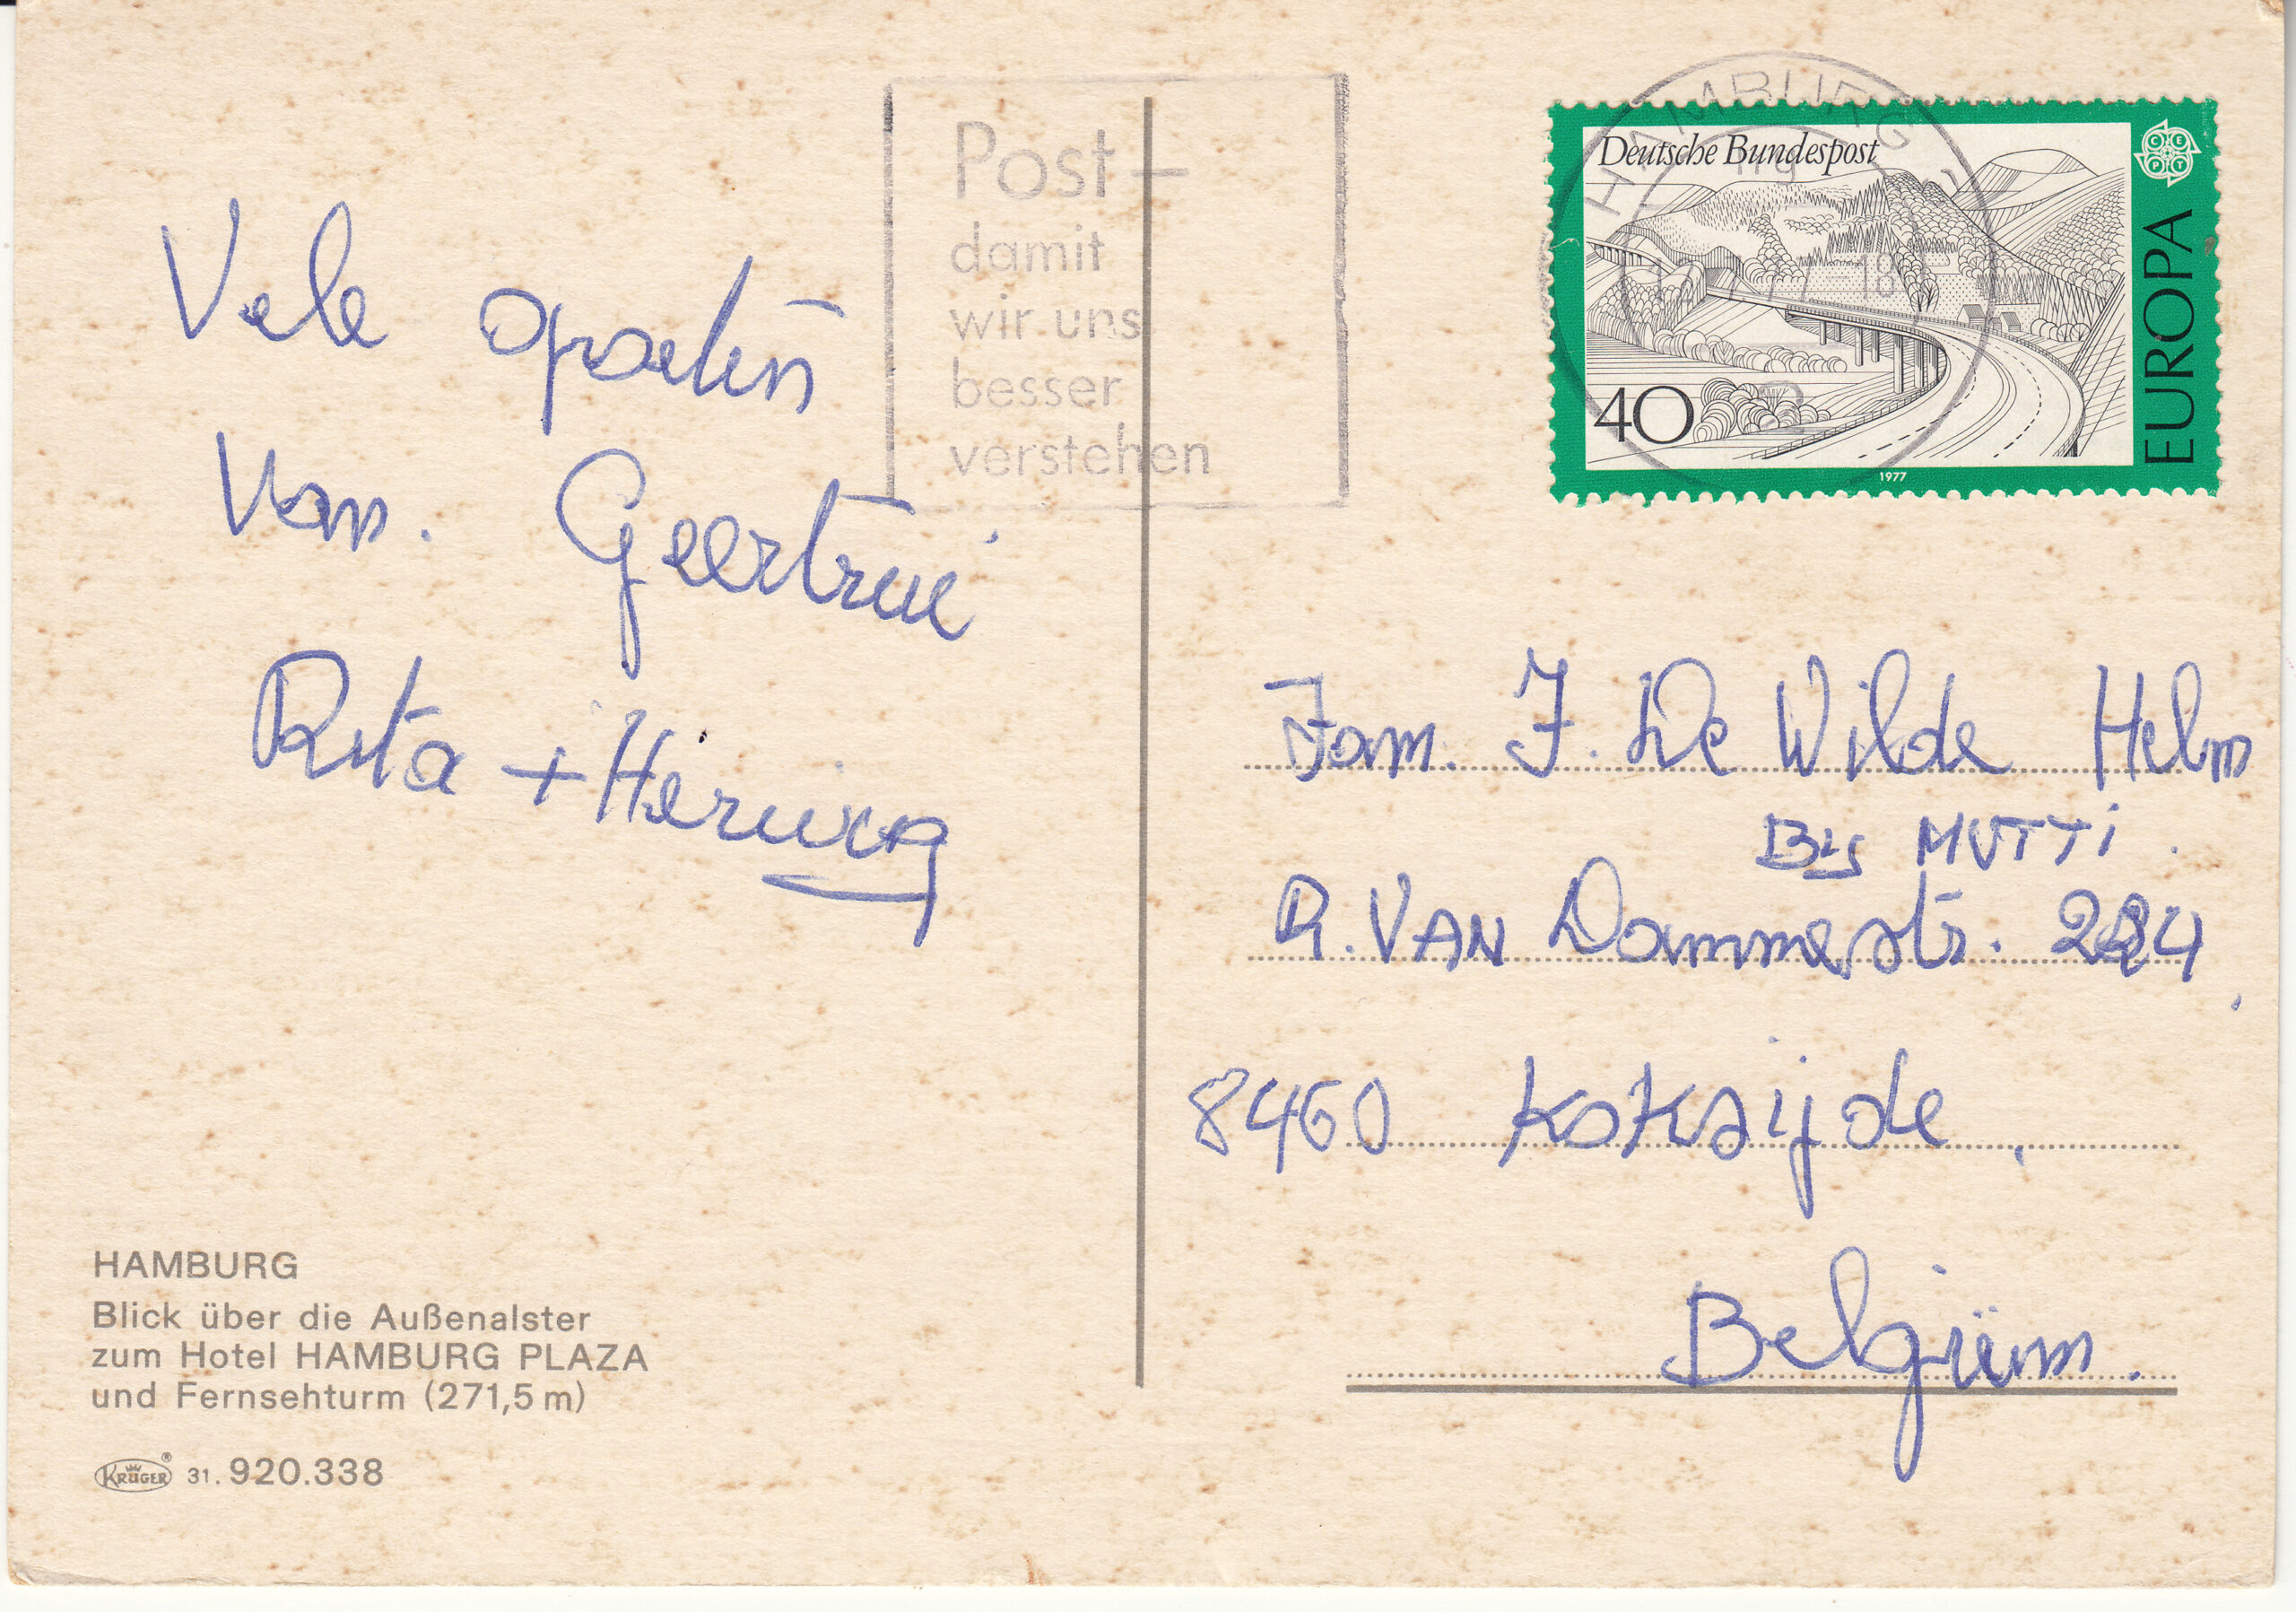 Post –
damit
wir uns
besser
verstehen
HAMBURG
Deutsche Bundespost
40
EUROPA
CEPT
1977
Vele
Van. Geertrui
Rita + Herwig
Fam. J. De Wilde Helm
Bij MUTTi.
R. VAN Dammestr.
8460 Koksijde,
Belgium.
HAMBURG
Blick über die Außenalster
zum Hotel HAMBURG PLAZA
und Fernsehturm (271,5 m)
KRÜGER® 31.920.338